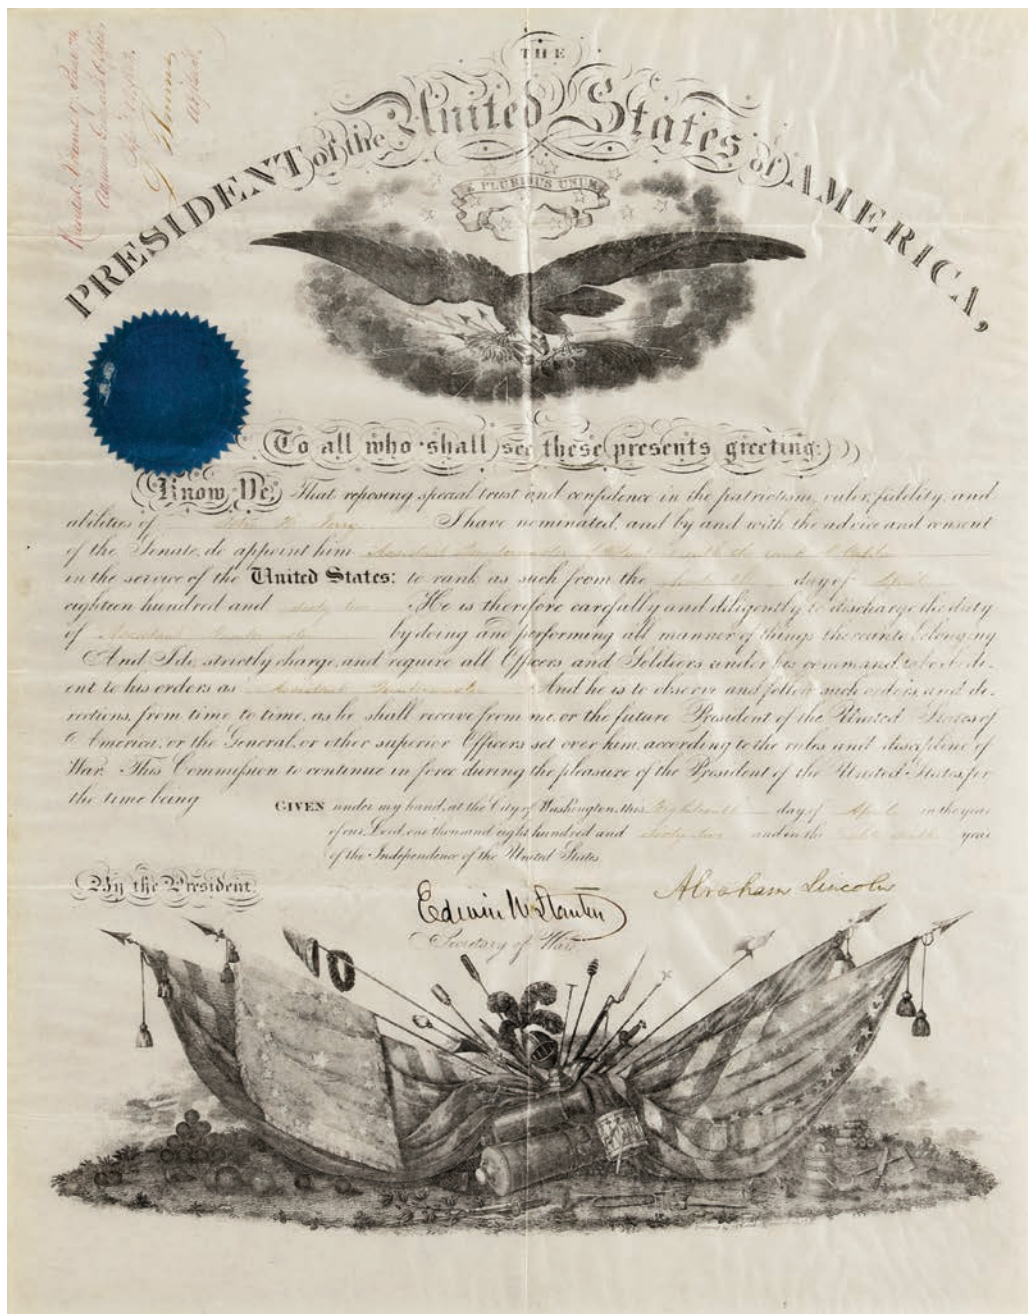 THE
PRESIDENT of the United States of AMERICA,
E PLURIBUS UNUM
To all who shall see these presents greeting:
Know Ye, That reposing special trust and confidence in the patriotism, valor, fidelity, and
abilities of I have nominated, and by and with the advice and consent
of the Senate, do appoint him Assistant Quartermaster with the rank of Captain
in the service of the United States: to rank as such from the day of April
eighteen hundred and sixty two He is therefore carefully and diligently to discharge the duty
of Assistant Quartermaster by doing and performing all manner of things thereunto belonging
And I do strictly charge, and require all Officers and Soldiers under his command to be obedi-
ent to his orders as Assistant Quartermaster And he is to observe and follow such orders, and di-
rections, from time to time, as he shall receive from me, or the future President of the United States of
America, or the General, or other superior Officers set over him, according to the rules and discipline of
War. This Commission to continue in force during the pleasure of the President of the United States, for
the time being
GIVEN under my hand, at the City of Washington, this Eighteenth day of April in the year
of our Lord, one thousand eight hundred and sixty two and in the eighty sixth year
of the Independence of the United States
By the President
Abraham Lincoln
Edwin M Stanton
Secretary of War